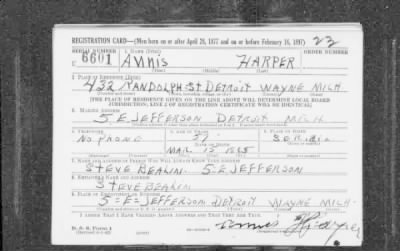 REGISTRATION CARD—(Men born on or after April 28, 1877 and on or before February 16, 1897)
SERIAL NUMBER
1. NAME (Print)
ORDER NUMBER
U 6601 ANNIS HARPER
(First) (Middle) (Last)
2. PLACE OF RESIDENCE (Print)
432 RANDOLPH ST. DETROIT WAYNE MICH.
[THE PLACE OF RESIDENCE GIVEN ON THE LINE ABOVE WILL DETERMINE LOCAL BOARD
JURISDICTION; LINE 2 OF REGISTRATION CERTIFICATE WILL BE IDENTICAL]
3. MAILING ADDRESS
5 E JEFFERSON DETROIT MICH.
4. TELEPHONE
5. AGE IN YEARS
6. PLACE OF BIRTH
NO PHONE
DATE OF BIRTH
MAR 15
7. NAME AND ADDRESS OF PERSON WHO WILL ALWAYS KNOW YOUR ADDRESS
STEVE 5-E JEFFERSON
8. EMPLOYER'S NAME AND ADDRESS
STEVE
9. PLACE OF EMPLOYMENT OR BUSINESS
5=E=JEFFERSON DETROIT WAYNE MICH.
I AFFIRM THAT I HAVE VERIFIED ABOVE ANSWERS AND THAT THEY ARE TRUE.
D. S. S. Form 1